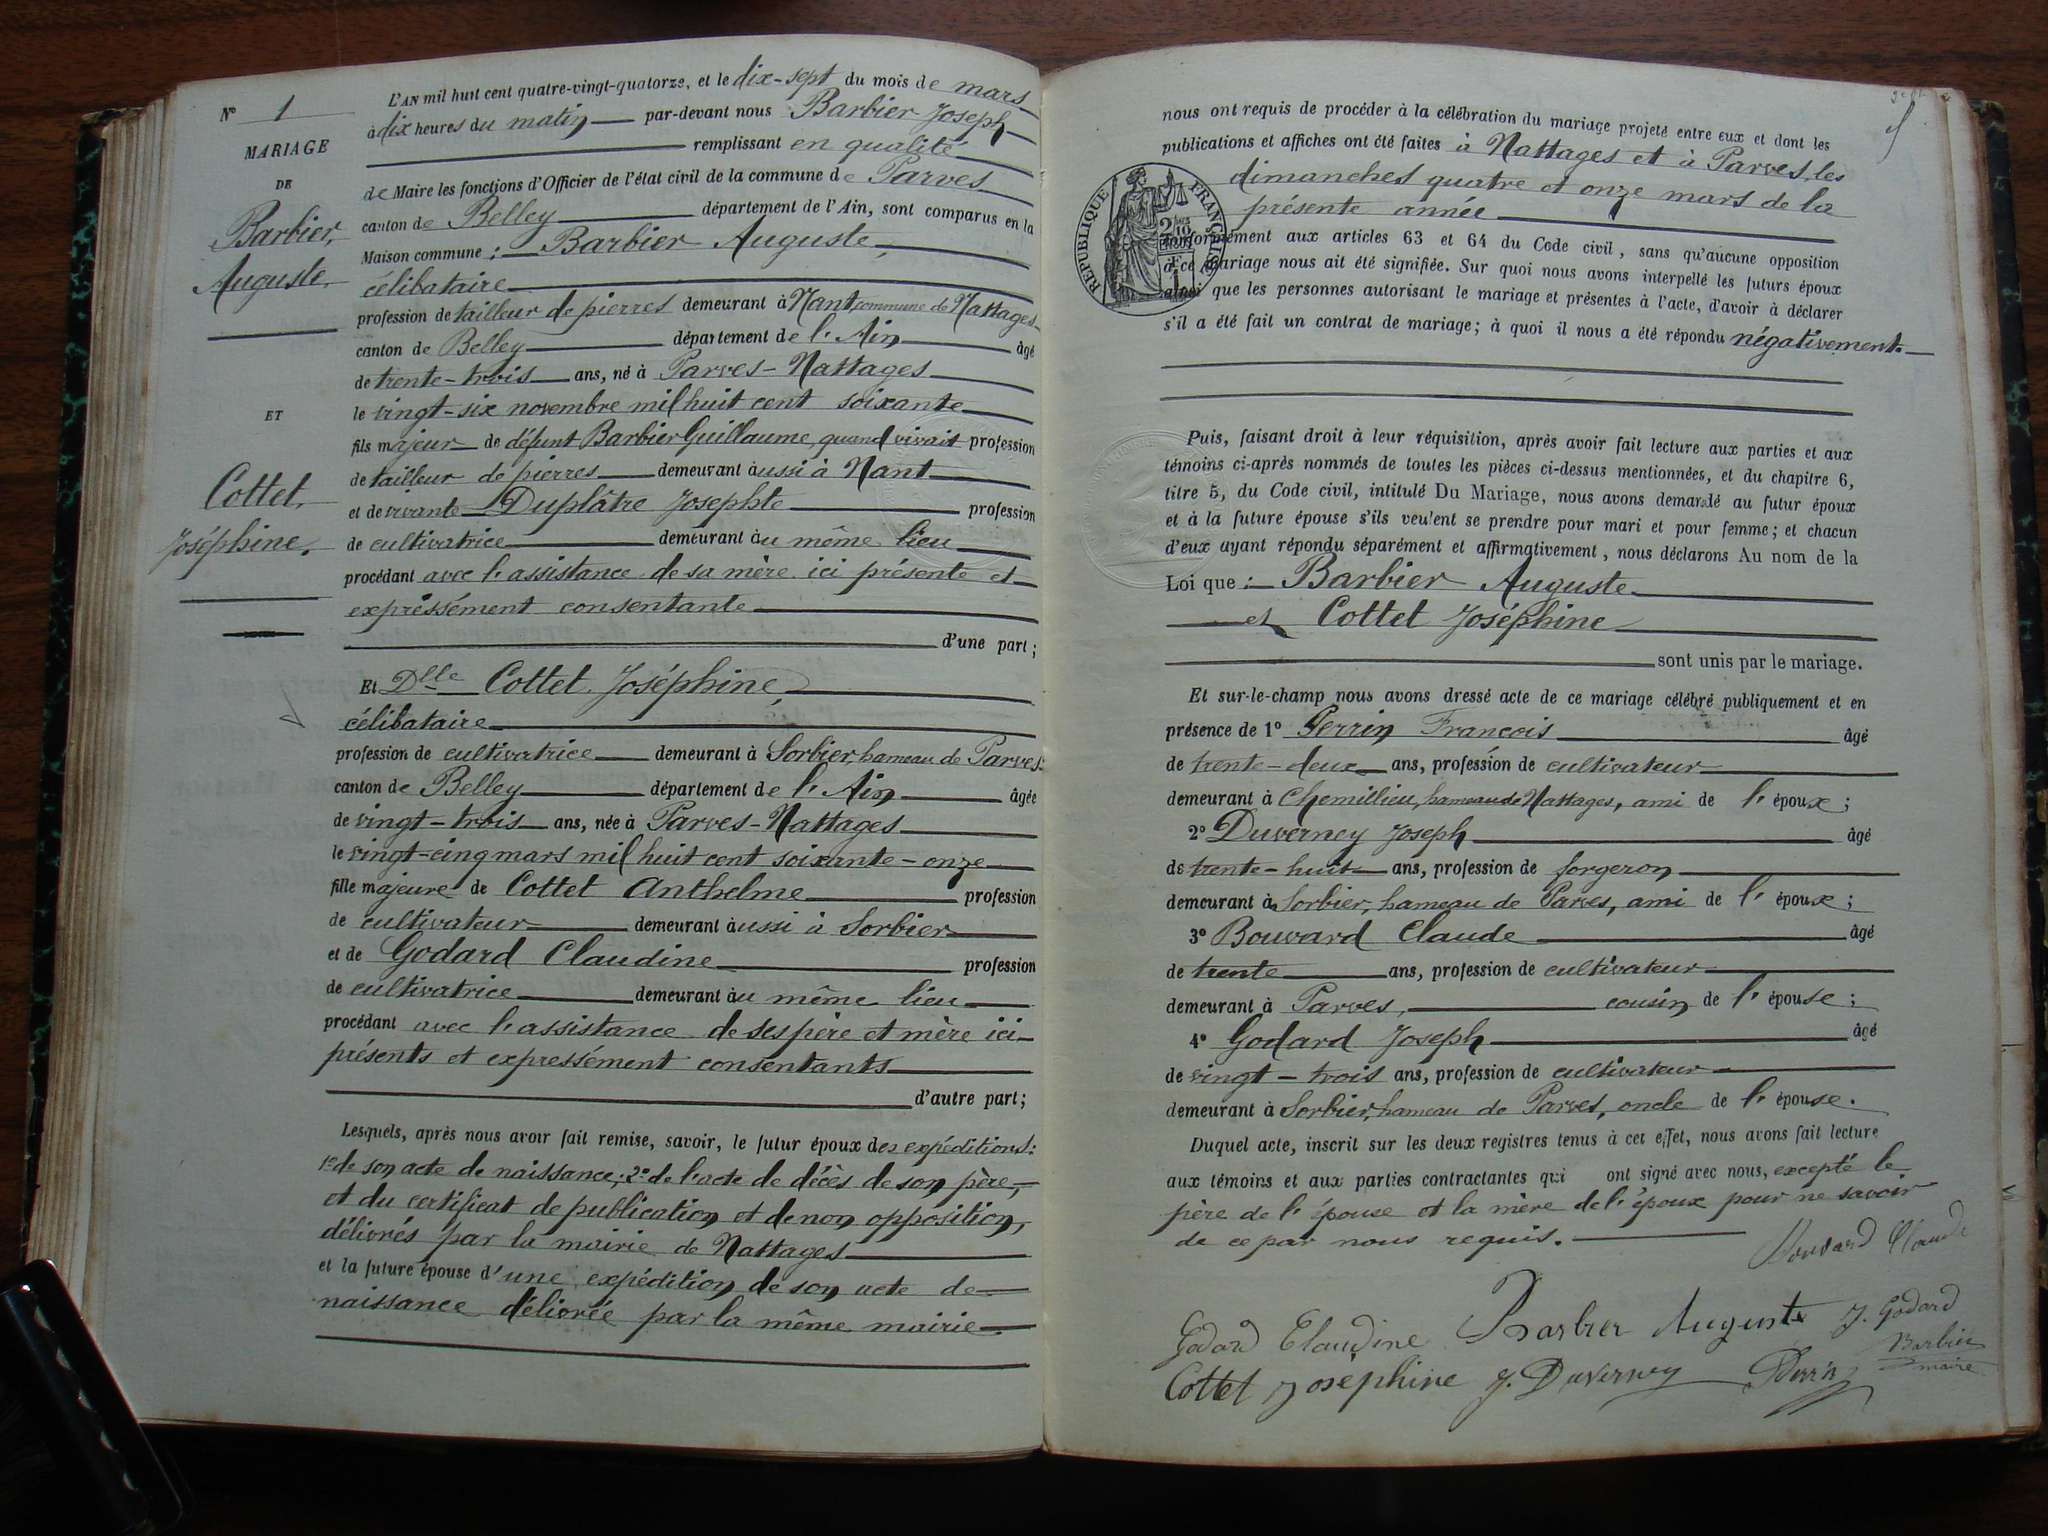 N° 1
MARIAGE
DE
Barbier,
Auguste,
ET
Cottet,
Joséphine.
L'AN mil huit cent quatre-vingt-quatorze, et le dix-sept du mois de mars
à dix heures du matin par-devant nous Barbier Joseph
remplissant en qualité
de Maire les fonctions d'Officier de l'état civil de la commune de Parves
canton de Belley département de l'Ain, sont comparus en la
Maison commune : Barbier Auguste,
célibataire
profession de tailleur de pierres demeurant à Nant, commune de Nattages
canton de Belley département de l'Ain âgé
de trente-trois ans, né à Parves-Nattages
le vingt-six novembre mil huit cent soixante
fils majeur de défunt Barbier Guillaume, quand vivait profession
de tailleur de pierres demeurant aussi à Nant
et de vivante Duplâtre Josephte profession
de cultivatrice demeurant au même lieu
procédant avec l'assistance de sa mère ici présente et
expressément consentante
d'une part ;
Et Dlle Cottet Joséphine,
célibataire
profession de cultivatrice demeurant à Sorbier, hameau de Parves
canton de Belley département de l'Ain âgée
de vingt-trois ans, née à Parves-Nattages
le vingt-cinq mars mil huit cent soixante-onze
fille majeure de Cottet Anthelme profession
de cultivateur demeurant aussi à Sorbier
et de Godard Claudine profession
de cultivatrice demeurant au même lieu
procédant avec l'assistance de ses père et mère ici
présents et expressément consentants
d'autre part ;
Lesquels, après nous avoir fait remise, savoir, le futur époux des expéditions :
1° de son acte de naissance ; 2° de l'acte de décès de son père,
et du certificat de publication et de non opposition,
délivrés par la mairie de Nattages
et la future épouse d'une expédition de son acte de
naissance délivrée par la même mairie.
nous ont requis de procéder à la célébration du mariage projeté entre eux et dont les
publications et affiches ont été faites à Nattages et à Parves, les
dimanches quatre et onze mars de la
présente année
RÉPUBLIQUE FRANÇAISE
conformément aux articles 63 et 64 du Code civil, sans qu'aucune opposition
à ce mariage nous ait été signifiée. Sur quoi nous avons interpellé les futurs époux
ainsi que les personnes autorisant le mariage et présentes à l'acte, d'avoir à déclarer
s'il a été fait un contrat de mariage ; à quoi il nous a été répondu négativement.
Puis, faisant droit à leur réquisition, après avoir fait lecture aux parties et aux
témoins ci-après nommés de toutes les pièces ci-dessus mentionnées, et du chapitre 6,
titre 5, du Code civil, intitulé Du Mariage, nous avons demandé au futur époux
et à la future épouse s'ils veulent se prendre pour mari et pour femme ; et chacun
d'eux ayant répondu séparément et affirmativement, nous déclarons Au nom de la
Loi que : Barbier Auguste
et Cottet Joséphine
sont unis par le mariage.
Et sur-le-champ nous avons dressé acte de ce mariage célébré publiquement et en
présence de 1° Perrin Francois âgé
de trente-deux ans, profession de cultivateur
demeurant à Chemillieu, hameau de Nattages, ami de l'époux ;
2° Duverney Joseph âgé
de trente-huit ans, profession de forgeron
demeurant à Sorbier, hameau de Parves, ami de l'époux ;
3° Bouvard Claude âgé
de trente ans, profession de cultivateur
demeurant à Parves, cousin de l'épouse ;
4° Godard Joseph âgé
de vingt-trois ans, profession de cultivateur
demeurant à Sorbier, hameau de Parves, oncle de l'épouse.
Duquel acte, inscrit sur les deux registres tenus à cet effet, nous avons fait lecture
aux témoins et aux parties contractantes qui ont signé avec nous, excepté le
père de l'épouse et la mère de l'époux pour ne savoir
de ce par nous requis.
Bouvard Claude
Godard Claudine Barbier Auguste J. Godard
Cottet Joséphine J. Duverney Perrin Barbier
maire